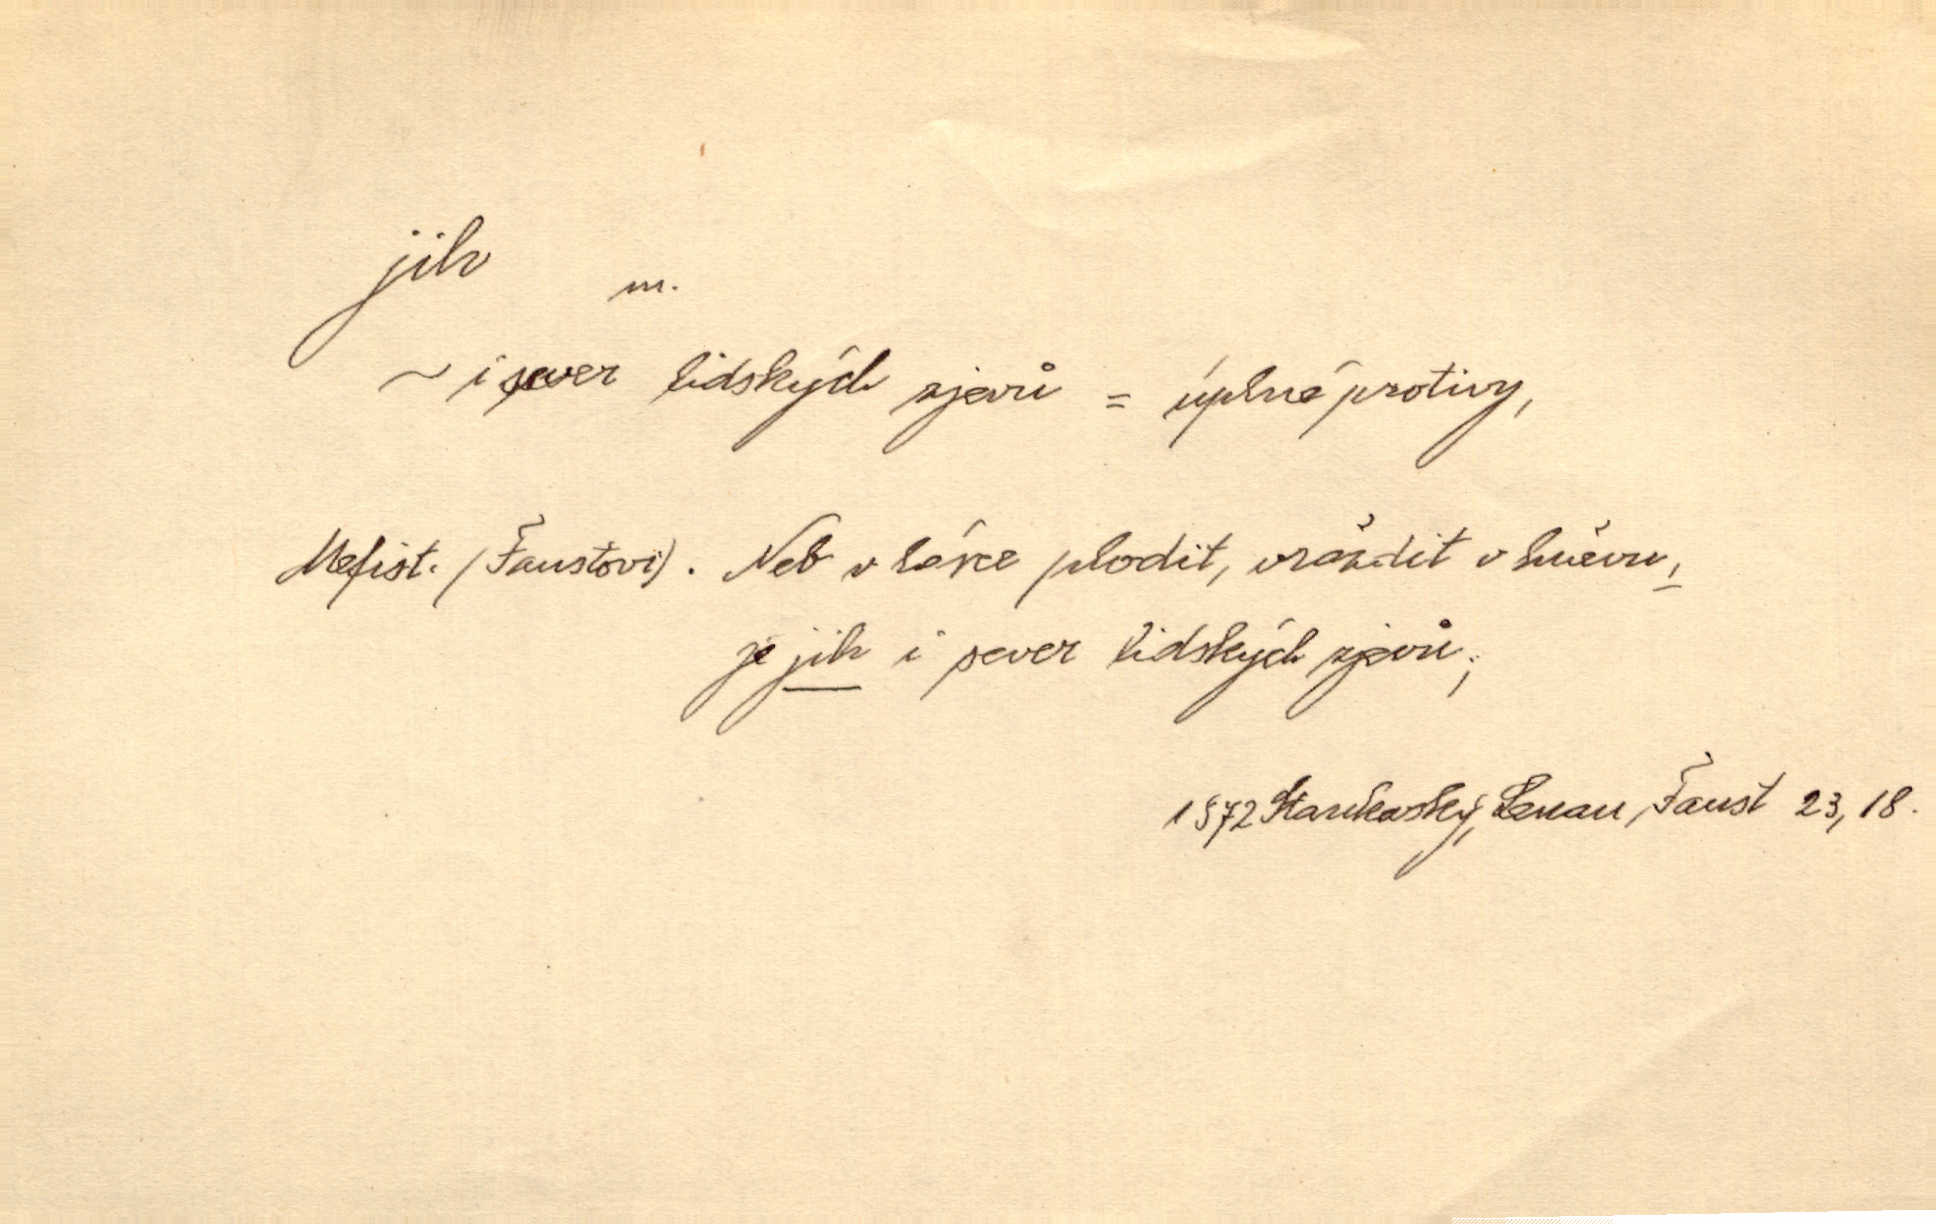 jih m.
~ i sever lidských zjevů = úplné protivy,
Mefist. (Faustovi). Neb v lásce plodit, vraždit v hněvu,
je jih i sever lidských zjevů;
1872 Stankovský, Lenau, Faust 23, 18.